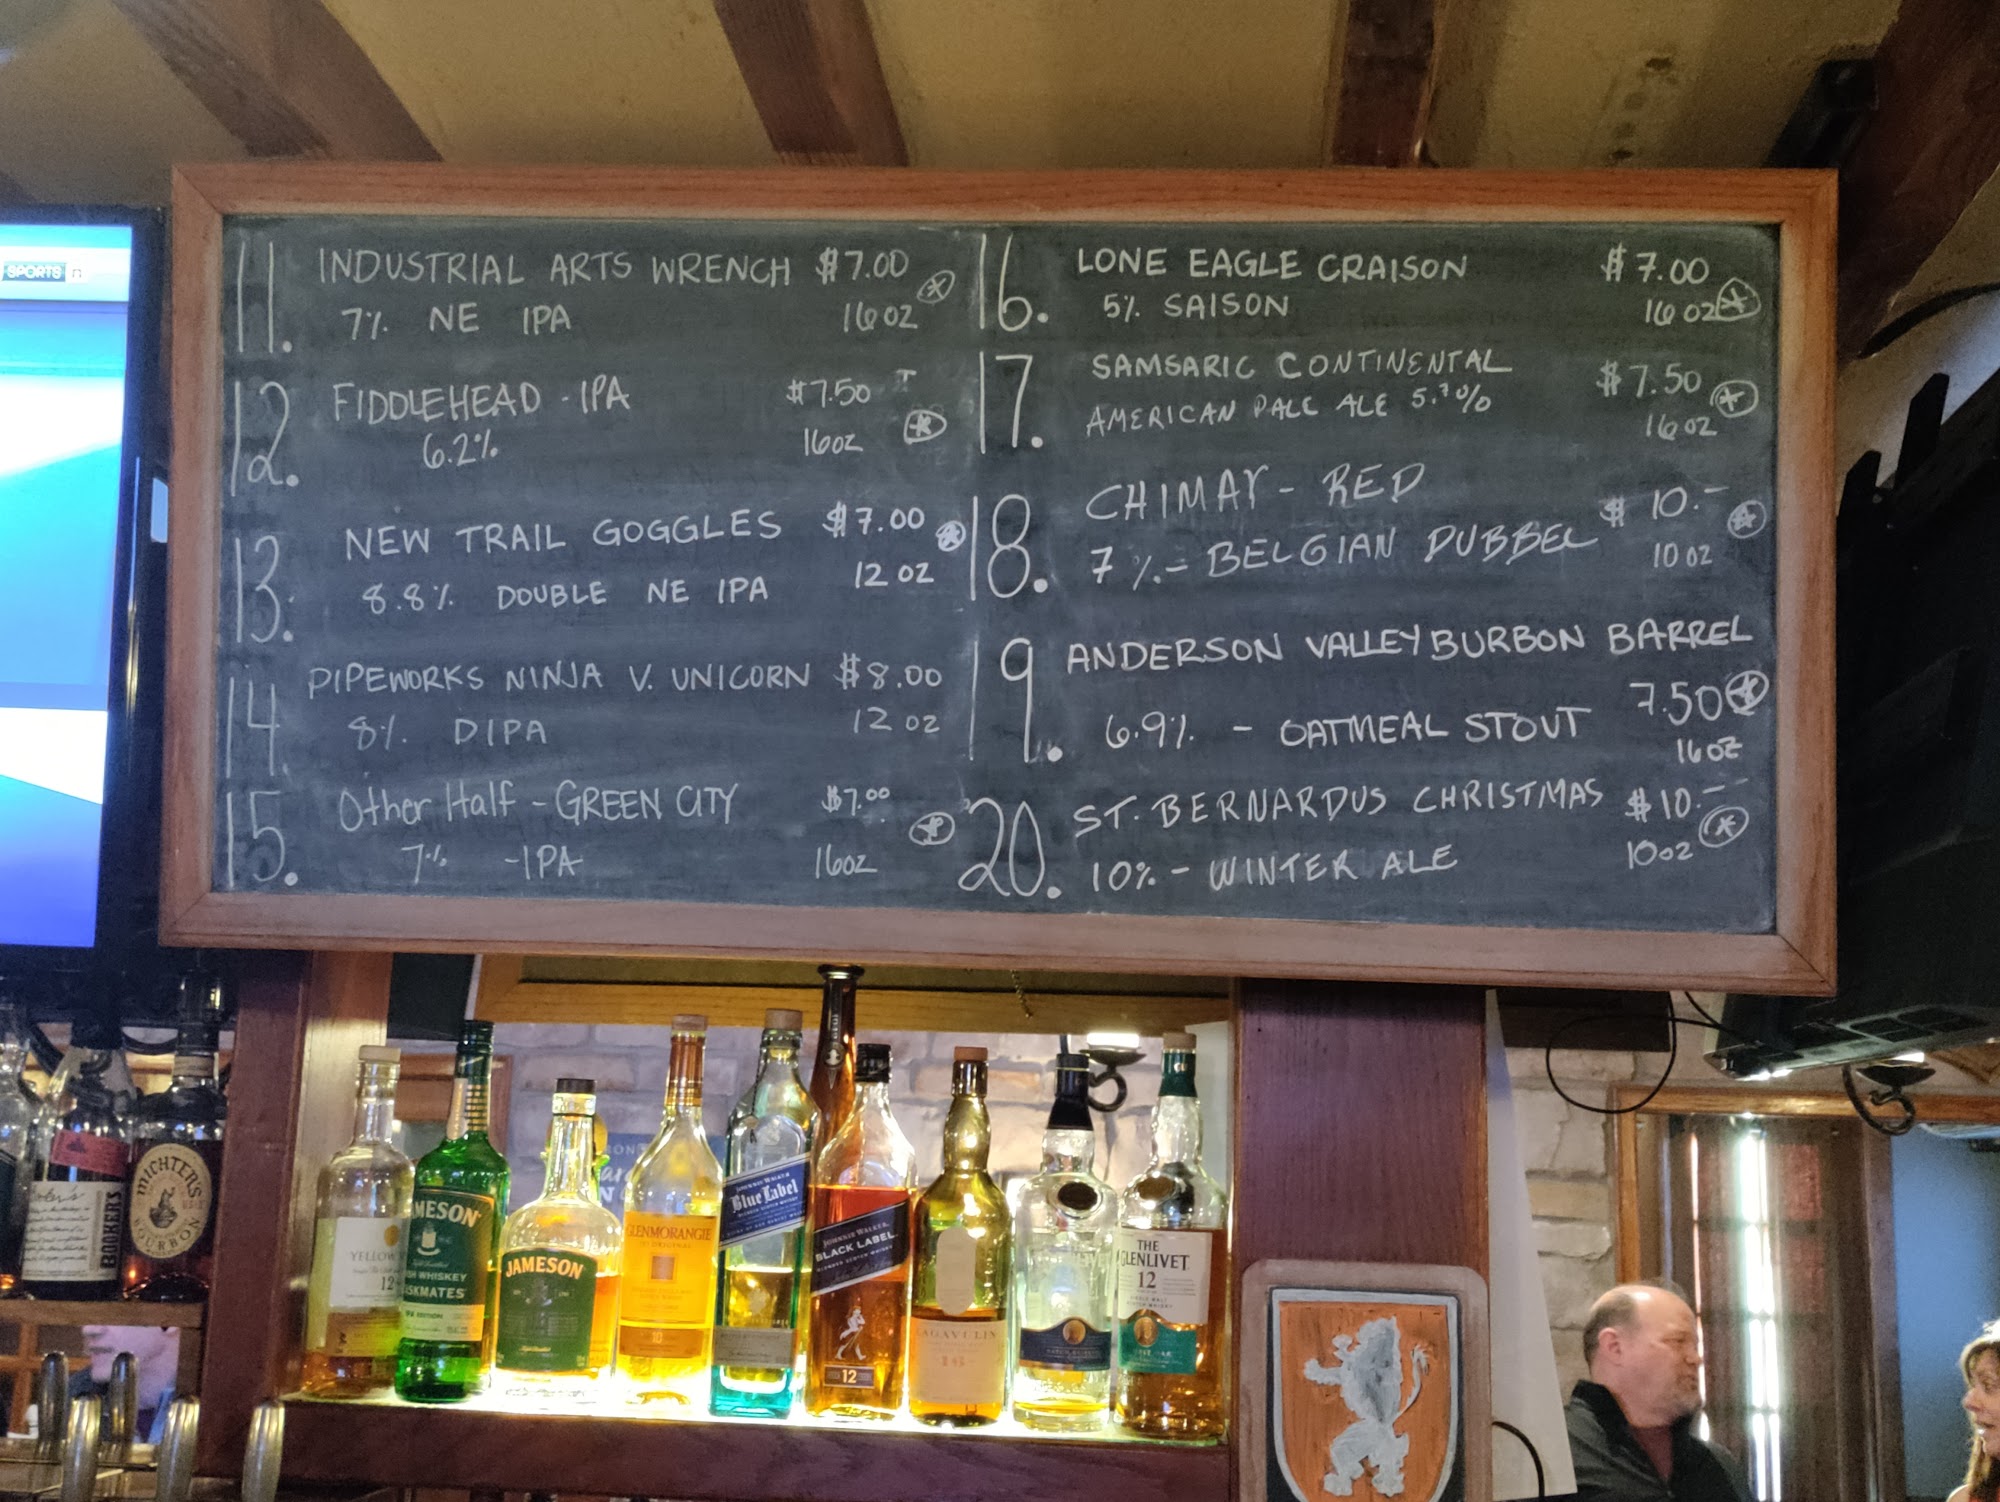 SPORTS
11. INDUSTRIAL ARTS WRENCH $7.00
7% NE IPA 16oz
12. FIDDLEHEAD - IPA $7.50
6.2% 16oz
13. NEW TRAIL GOGGLES $7.00
8.8% DOUBLE NE IPA 12 OZ
14. PIPEWORKS NINJA V. UNICORN $8.00
8% DIPA 12 OZ
15. Other Half - GREEN CITY $7.00
7% -IPA 16oz
16. LONE EAGLE CRAISON $7.00
5% SAISON 16 OZ
17. SAMSARIC CONTINENTAL $7.50
AMERICAN PALE ALE 5.7% 16 OZ
18. CHIMAY - RED $10.-
7%- BELGIAN DUBBEL 10 OZ
19. ANDERSON VALLEY BURBON BARREL
7.50
6.9% - OATMEAL STOUT 16OZ
20. ST. BERNARDUS CHRISTMAS $10.-
10% - WINTER ALE 10oz
BOOKER'S
MICHTER'S
BOURBON
YELLOW
12
JAMESON
WHISKEY
JAMESON
GLENMORANGIE
10
JOHNNIE WALKER
Blue Label
JOHNNIE WALKER
BLACK LABEL
12
LAGAVULIN
THE
GLENLIVET
12